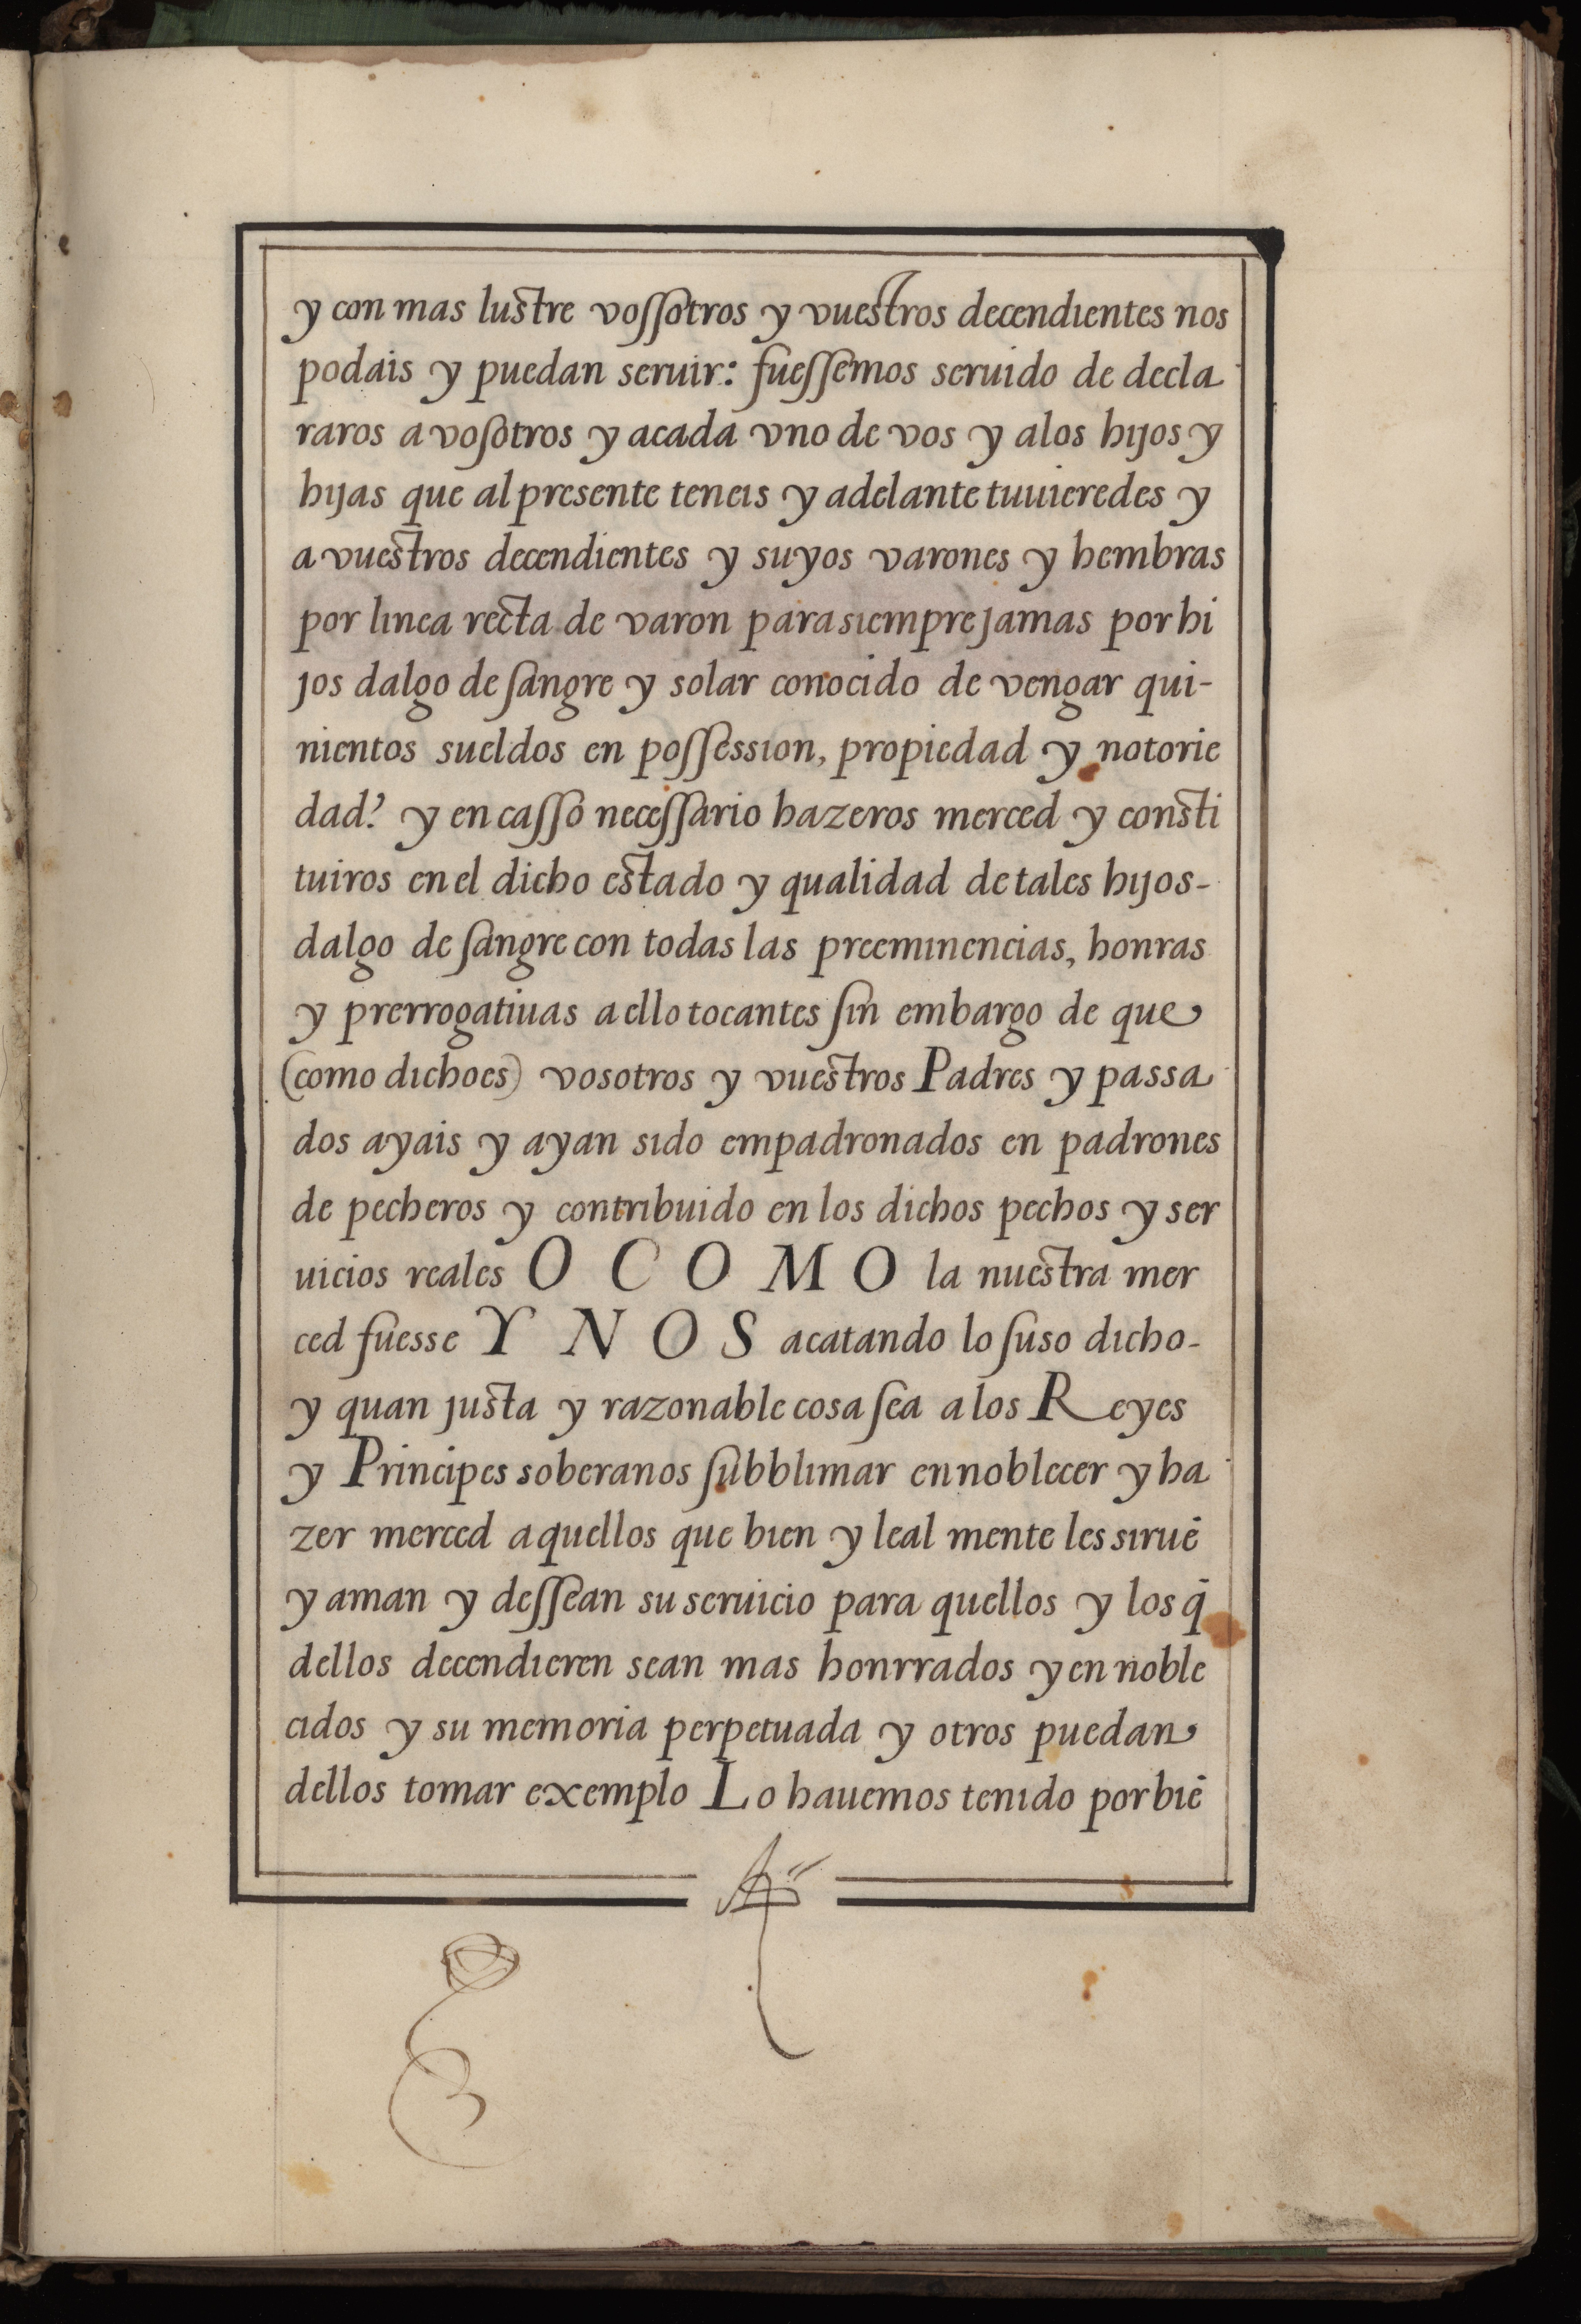 y con mas lustre vossotros y vuestros decendientes nos
podais y puedan seruir: fuessemos seruido de decla
raros a vosotros y acada vno de vos y alos hijos y
hijas que al presente teneis y adelante tuuieredes y
a vuestros decendientes y suyos varones y hembras
por linea recta de varon para siempre jamas por hi
jos dalgo de sangre y solar conocido de vengar qui-
nientos sueldos en possession, propiedad y notorie
dad? y en casso necessario hazeros merced y consti
tuiros en el dicho estado y qualidad de tales hijos-
dalgo de sangre con todas las preeminencias, honras
y prerrogatiuas a ello tocantes sin embargo de que
(como dicho es) vosotros y vuestros Padres y passa
dos ayais y ayan sido empadronados en padrones
de pecheros y contribuido en los dichos pechos y ser
uicios reales O COMO la nuestra mer
ced fuesse Y NOS acatando lo suso dicho-
y quan justa y razonable cosa sea a los Reyes
y Principes soberanos subblimar ennoblecer y ha
zer merced aquellos que bien y leal mente les siruē
y aman y dessean su seruicio para quellos y los q̄
dellos decendieren sean mas honrrados y en noble
cidos y su memoria perpetuada y otros puedan
dellos tomar exemplo Lo hauemos tenido por biē